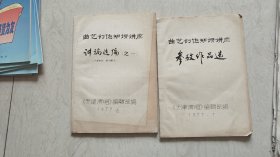 曲艺创作知识讲座
讲稿选编 之一
《天津演唱》编辑部编
1977.6
曲艺创作知识讲座
参考作品选
《天津演唱》编辑部编
1977.7